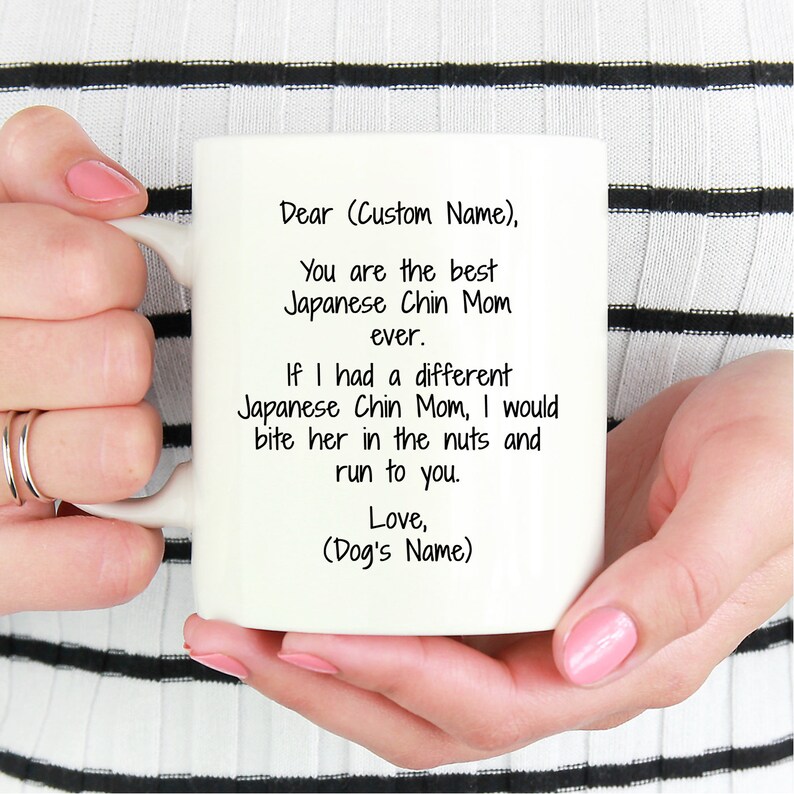 Dear (Custom Name),
You are the best
Japanese Chin Mom
ever.
If I had a different
Japanese Chin Mom, I would
bite her in the nuts and
run to you.
Love,
(Dog's Name)